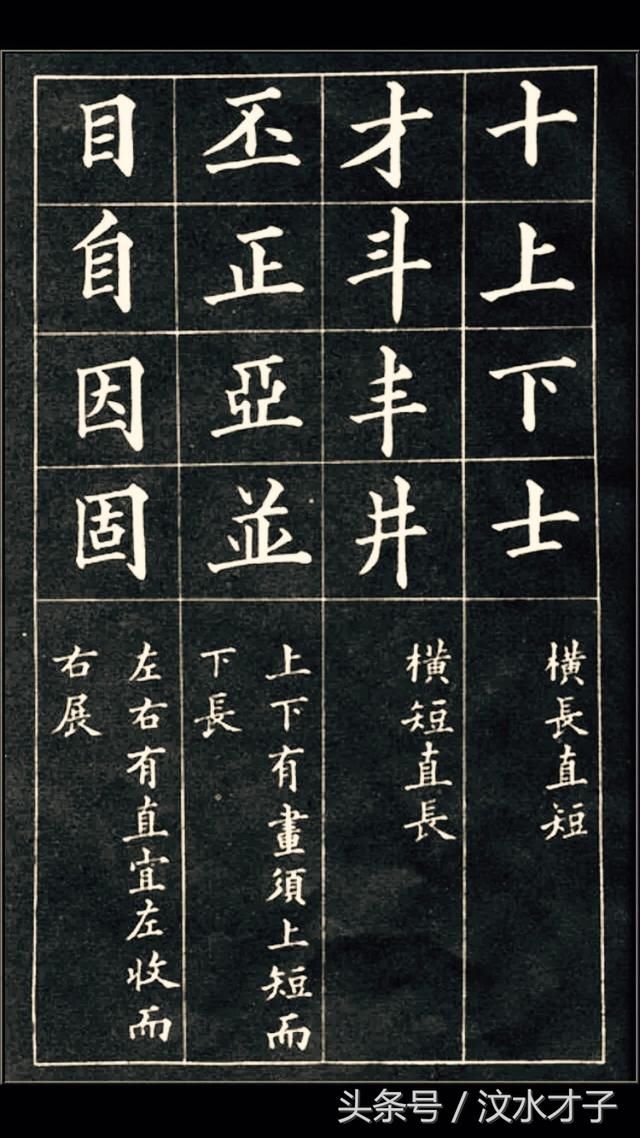 十上下士
横長直短
才斗丰井
横短直長
丕正亞並
上下有畫須上短而
下長
目自因固
左右有直宜左收而
右展
头条号 / 汶水才子